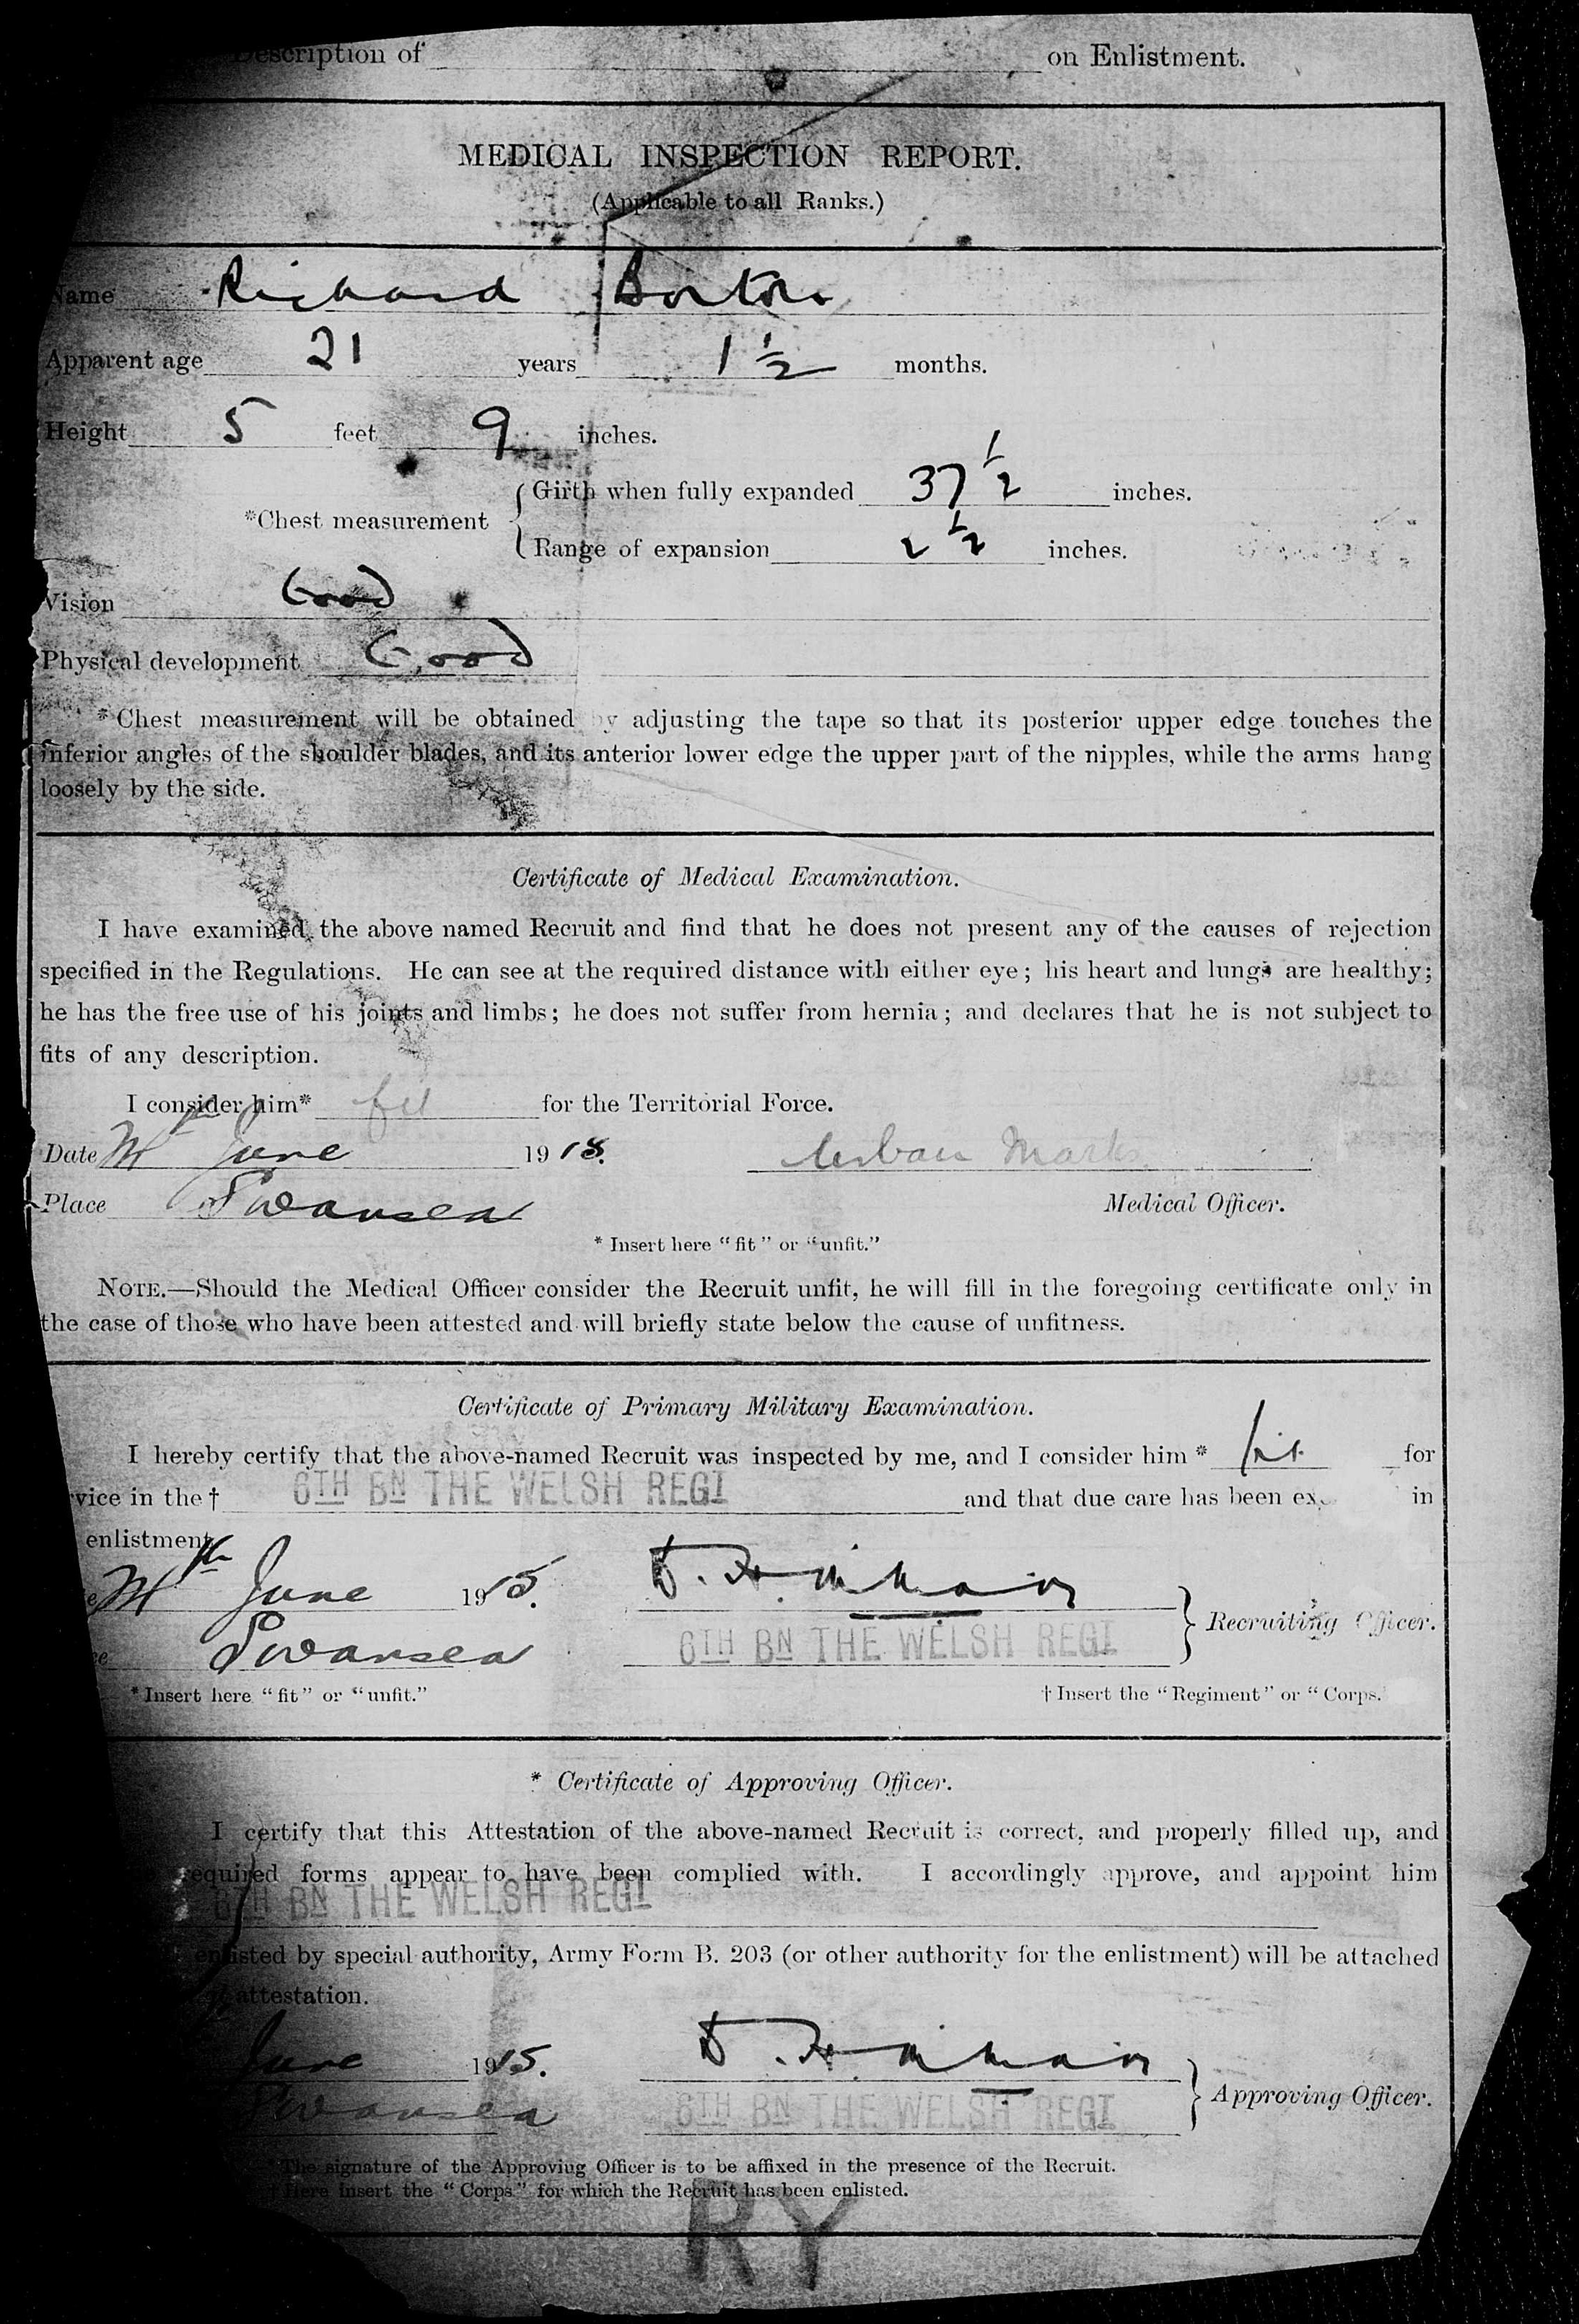 Description of on Enlistment.
MEDICAL INSPECTION REPORT.
(Applicable to all Ranks.)
Name Richard Borton
Apparent age 21 years 1 1/2 months.
Height 5 feet 9 inches.
Girth when fully expanded 37 1/2 inches.
*Chest measurement
Range of expansion 2 1/2 inches.
Vision Good
Physical development Good
*Chest measurement will be obtained by adjusting the tape so that its posterior upper edge touches the
inferior angles of the shoulder blades, and its anterior lower edge the upper part of the nipples, while the arms hang
loosely by the side.
Certificate of Medical Examination.
I have examined the above named Recruit and find that he does not present any of the causes of rejection
specified in the Regulations. He can see at the required distance with either eye; his heart and lungs are healthy;
he has the free use of his joints and limbs; he does not suffer from hernia; and declares that he is not subject to
fits of any description.
I consider him* fit for the Territorial Force.
Date June 1915. Urban Marks
Place Swansea Medical Officer.
* Insert here "fit" or "unfit."
NOTE.—Should the Medical Officer consider the Recruit unfit, he will fill in the foregoing certificate only in
the case of those who have been attested and will briefly state below the cause of unfitness.
Certificate of Primary Military Examination.
I hereby certify that the above-named Recruit was inspected by me, and I consider him * fit for
vice in the † 6TH BN THE WELSH REGT and that due care has been ex in
enlistment
June 1915.
Recruiting Officer.
Swansea 6TH BN THE WELSH REGT
*Insert here "fit" or "unfit." † Insert the "Regiment" or "Corps.
* Certificate of Approving Officer.
I certify that this Attestation of the above-named Recruit is correct, and properly filled up, and
required forms appear to have been complied with. I accordingly approve, and appoint him
6TH BN THE WELSH REGT
enlisted by special authority, Army Form B. 203 (or other authority for the enlistment) will be attached
attestation.
June 1915.
Approving Officer.
Swansea 6TH BN THE WELSH REGT
The signature of the Approving Officer is to be affixed in the presence of the Recruit.
† Here insert the "Corps" for which the Recruit has been enlisted.
RY